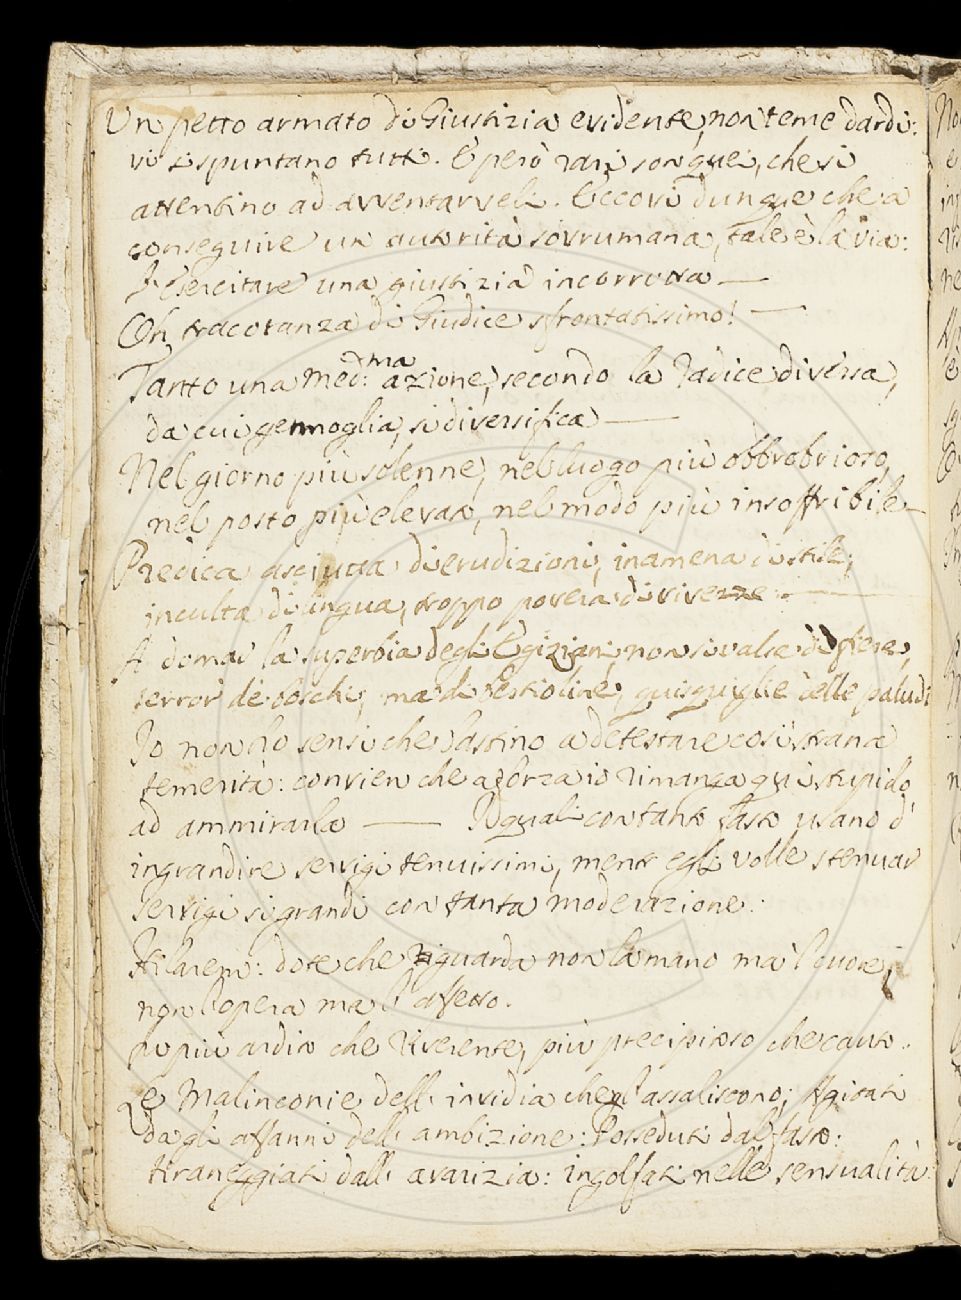 Un petto armato di Giustizia evidente, non teme dardi:
vi si spuntano tutti. E però rari son quei, che si
attentino ad avventarveli. Eccovi dunque che a
conseguire un autorità sovrumana, tale è la via:
Esercitare una giustizia incorrotta —
Oh, tracotanza di Giudice sfrontatissimo! —
Tanto una med:ma azione, secondo la radice diversa,
da cui germoglia, si diversifica —
Nel giorno più solenne, nel luogo più obbrobrioso,
nel posto più elevato, nel modo più insoffribile —
Predica asciutta di erudizioni, inamena di stile,
inculta di lingua, troppo povera di vivezze. —
A domar la superbia degli Egiziani, non si valse di fiere,
terror de boschi, ma di bestioline, quisquiglie delle paludi
Io non ho sensi che bastino a detestare così strana
temerità: convien che a forza io rimanga quì stupido
ad ammirarla — I quali con tanto fasto usano d'
ingrandire servigi tenuissimi, mentr egli volle stenuar
servigi sì grandi con tanta moderazione.
Hilarem: dote che riguarda non la mano ma 'l cuore,
non l'opera ma l' affetto.
più ardito che riverente, più precipitoso che cauto.
Le Malinconie dell' invidia che gl'assaliscono; Agitati
dagli affanni dell' ambizione: Posseduti dal fasto:
tiraneggiati dall' avarizia: ingolfati nelle sensualità